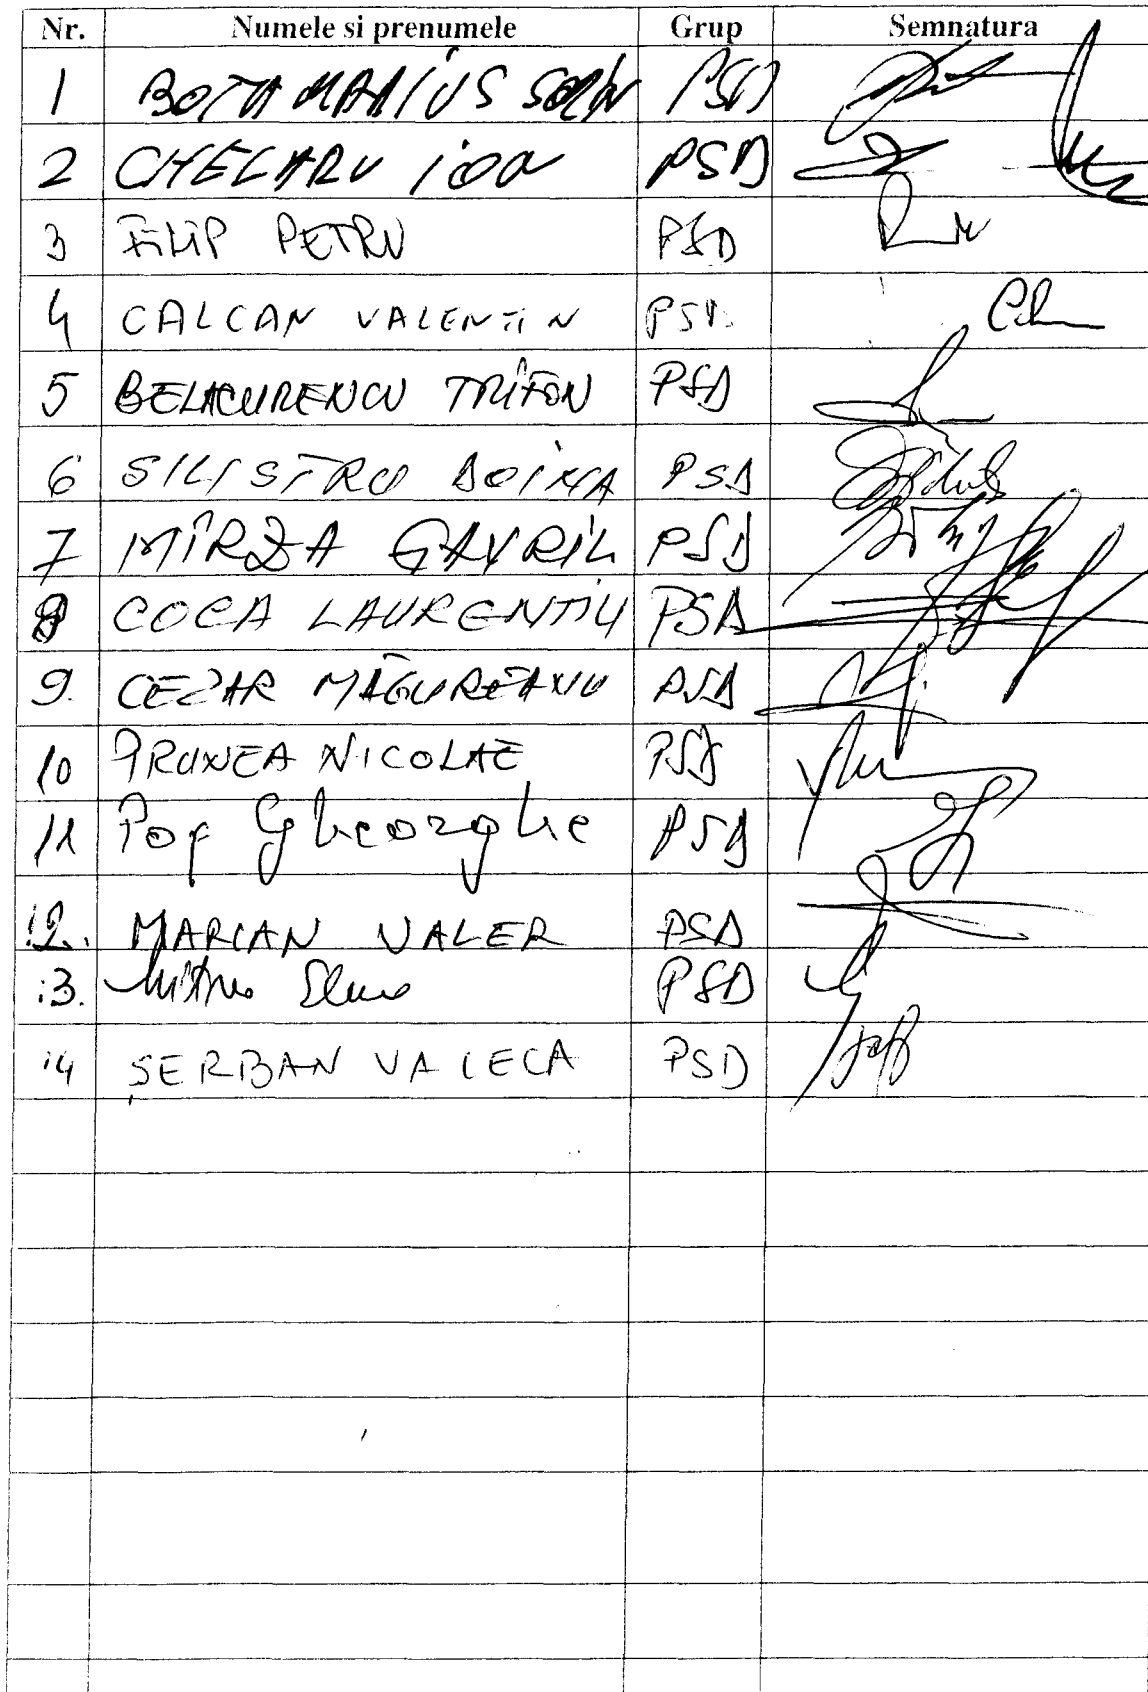 Nr. Numele si prenumele Grup Semnatura
1 BOTA MARIUS SORIN PSD
2 CHELARU ioan PSD
3 FILIP PETRU PSD
4 CALCAN VALENTIN PSD
5 BELACURENCU TRIFON PSD
6 SILISTRU DOINA PSD
7 MÎRZA GAVRIL PSD
8 COCA LAURENTIU PSD
9. CEZAR MĂGUREANU PSD
10 PRUNEA NICOLAE PSD
11 Pop Gheorghe PSD
12. MARIAN VALER PSD
13. Mitrea Elena PSD
14 ȘERBAN VALECA PSD